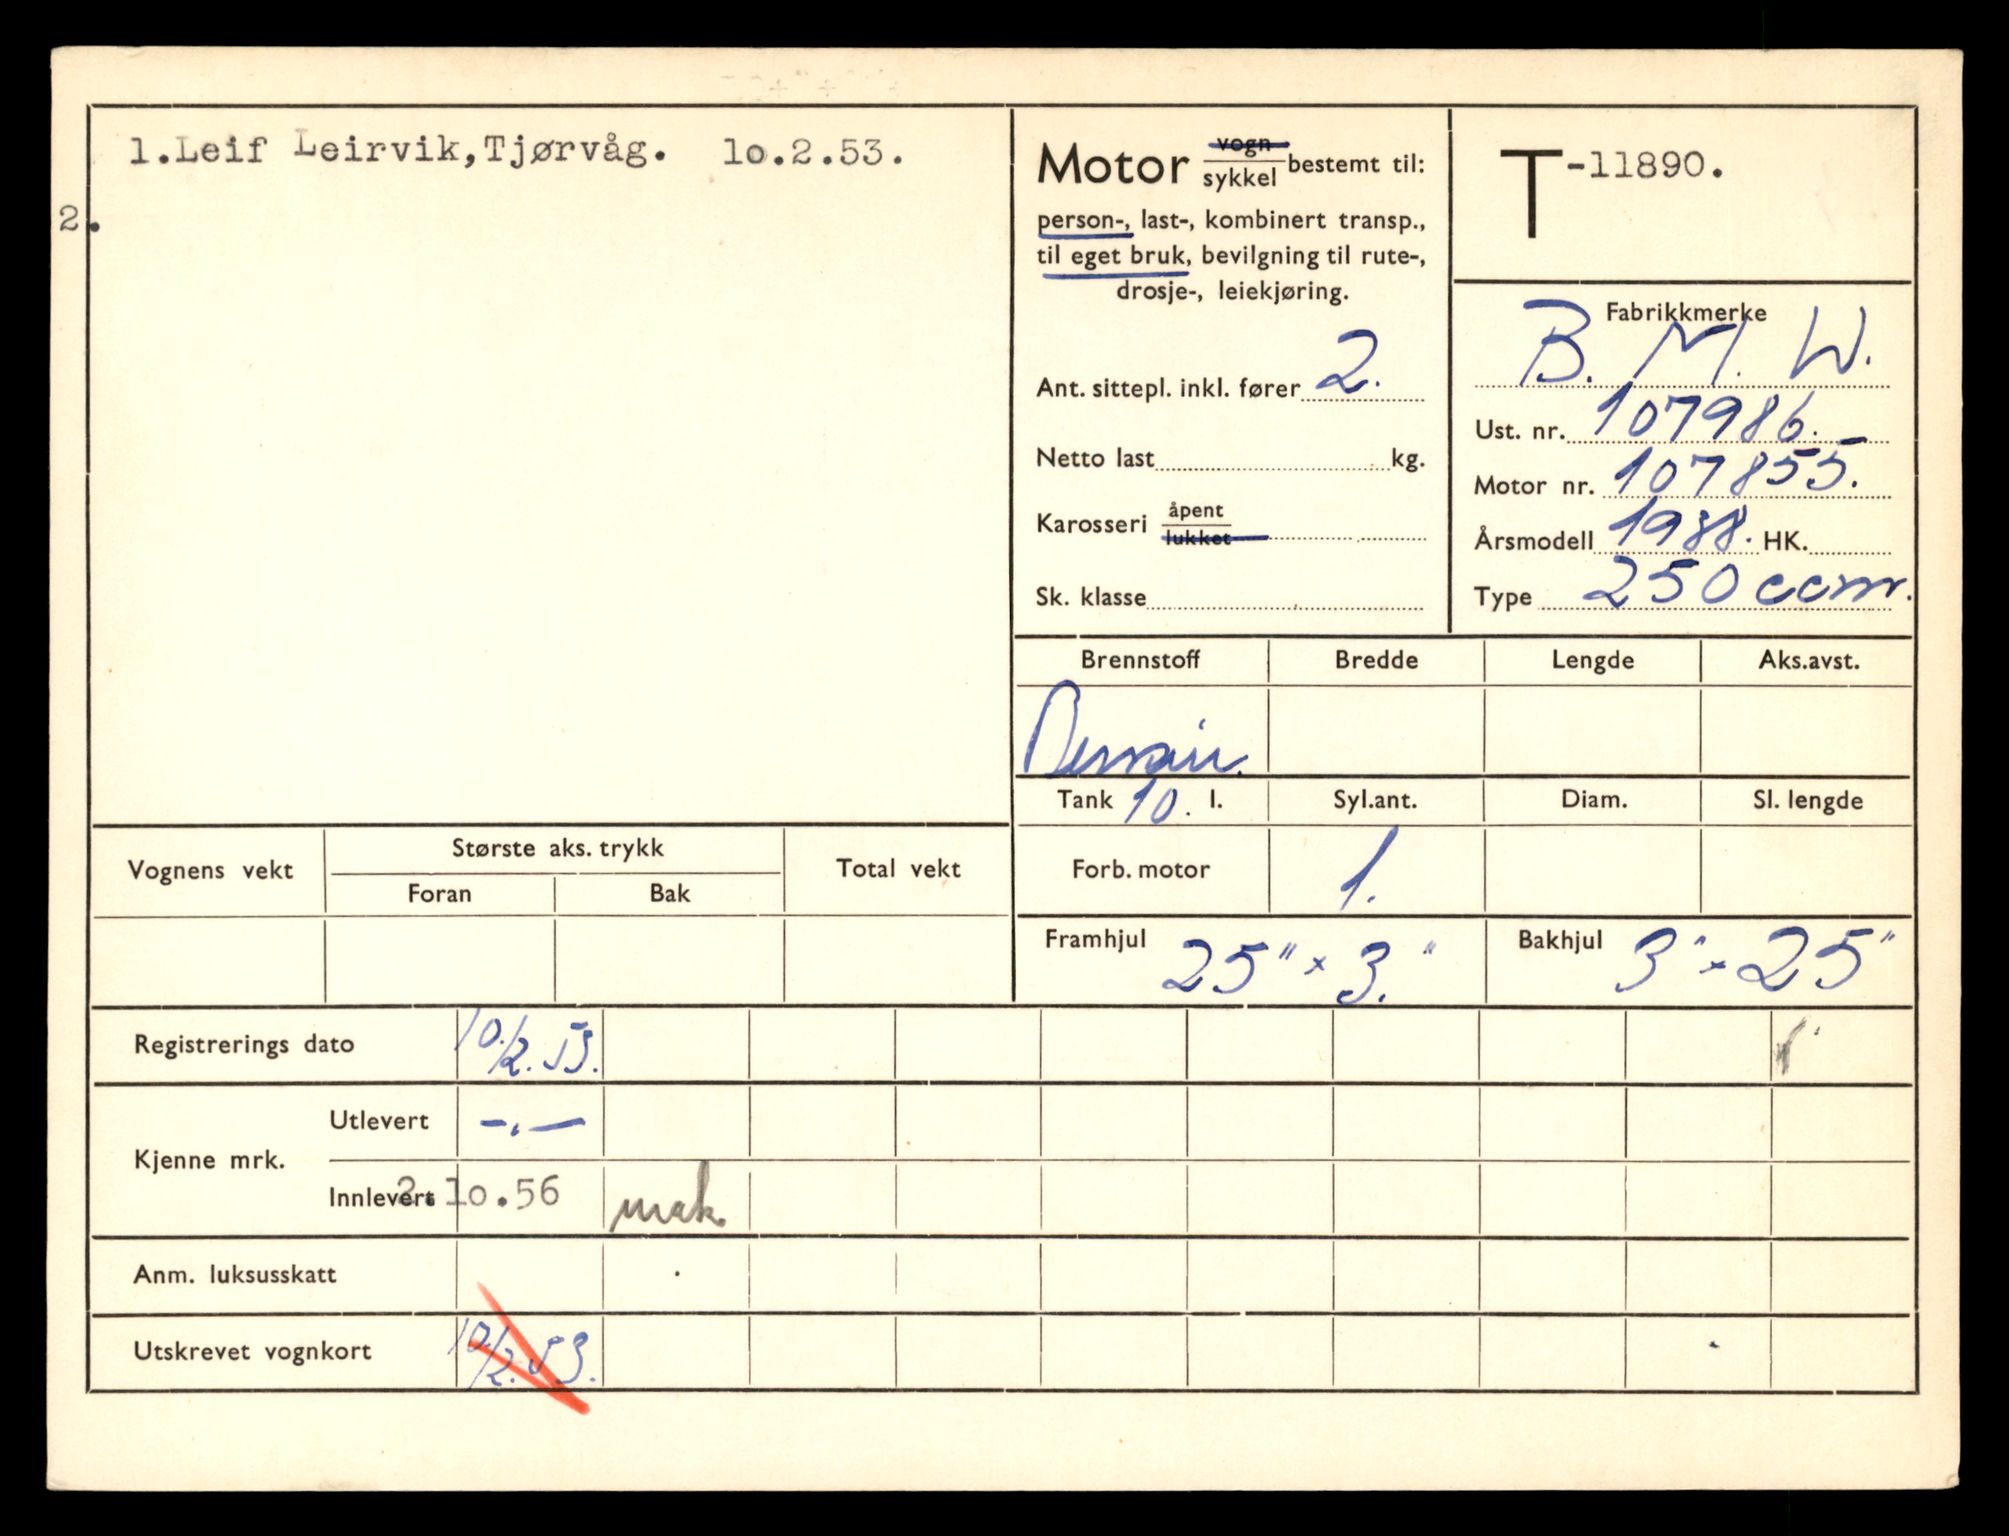 1.Leif Leirvik,Tjørvåg. 10.2.53.
2.
Motor vogn/sykkel bestemt til:
person-, last-, kombinert transp.,
til eget bruk, bevilgning til rute-,
drosje-, leiekjøring.
Ant. sittepl. inkl. fører 2.
Netto last kg.
Karosseri åpent/lukket
Sk. klasse
T-11890.
Fabrikkmerke
B. M. W.
Ust. nr. 107986.
Motor nr. 107855.
Årsmodell 1938. HK.
Type 250 ccm.
Brennstoff Bredde Lengde Aks.avst.
Bensin.
Tank 10. l. Syl.ant. Diam. Sl. lengde
Forb. motor 1.
Framhjul 25" x 3." Bakhjul 3" x 25"
Vognens vekt Største aks. trykk Total vekt
Foran Bak
Registrerings dato 10/2. 53.
Kjenne mrk.
Utlevert -.-
Innlevert 2.10.56 mak.
Anm. luksusskatt
Utskrevet vognkort 10/2. 53.